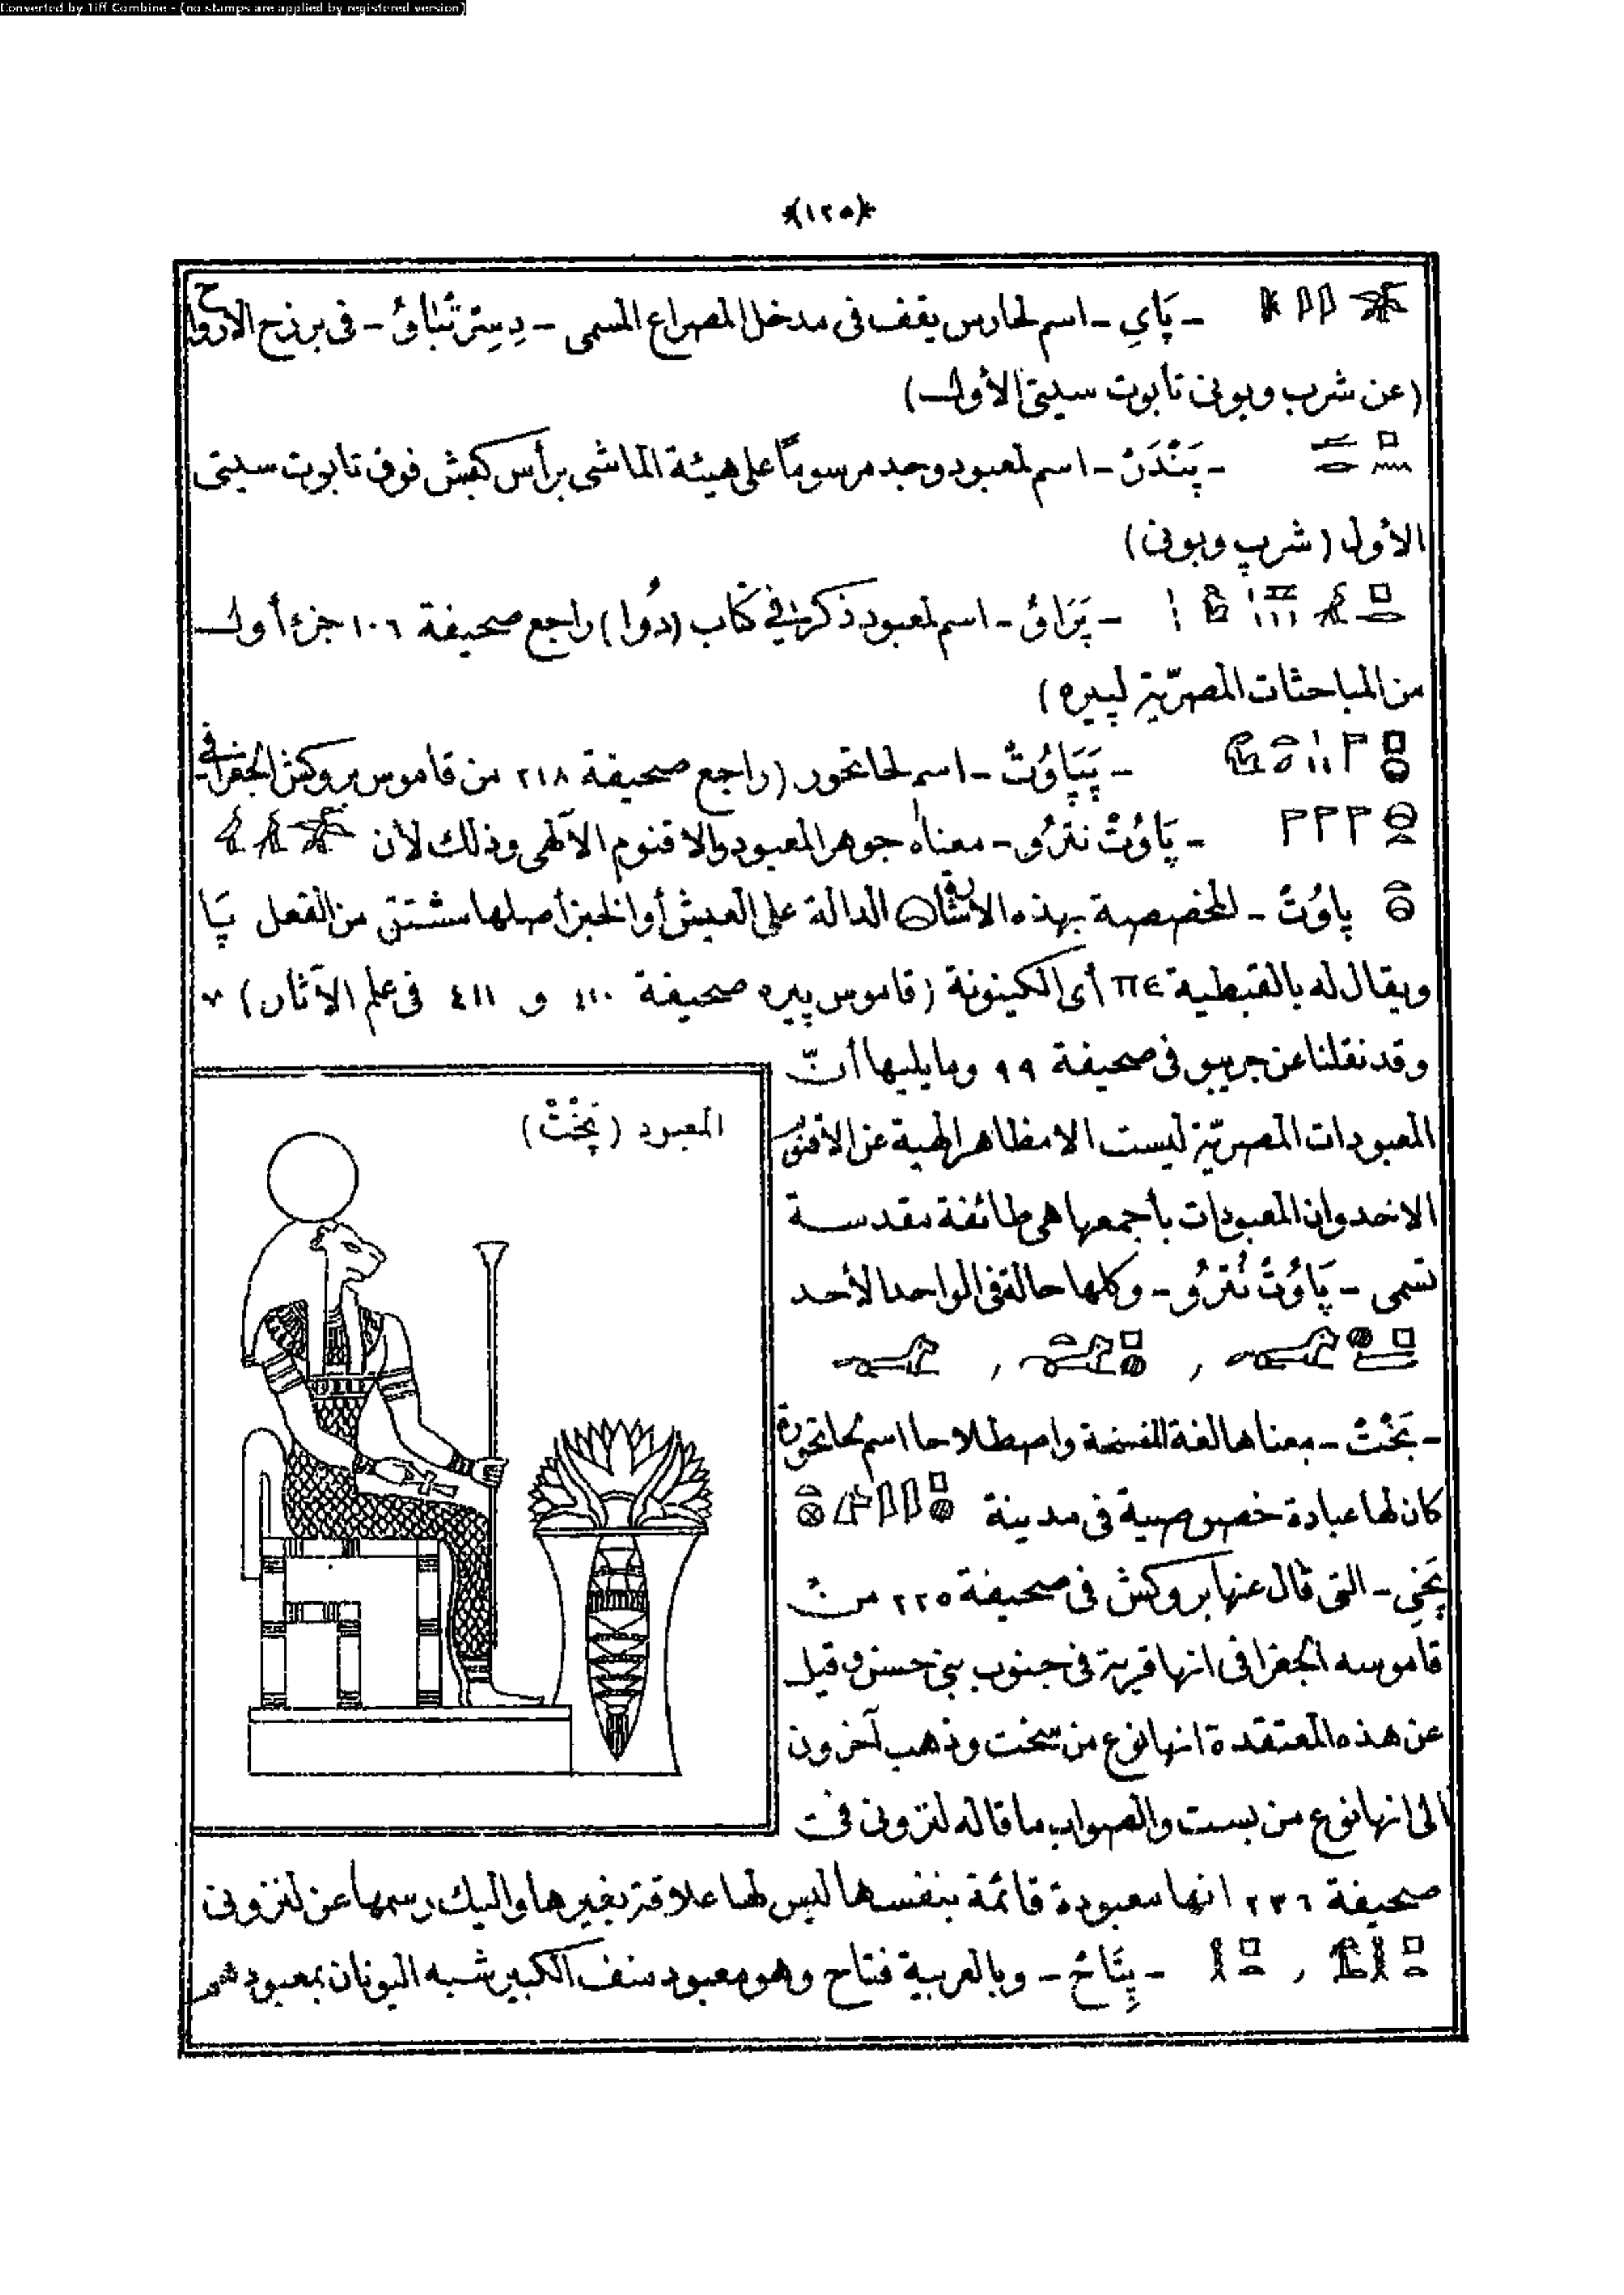 Converted by Tiff Combine - (no stamps are applied by registered version)
*(١٢٥)*
- پَاىِ - اسم لحارس يقف فى مدخل المصراع المسمى - - فى برزخ الارواح
(عن شرب وبونى تابوت سيتى الأول)
- پَنْدَن - اسم لمعبود وجد مرسوماً على هيئة الماشى برأس كبش فوق تابوت سيتى
الأول (شرپ وبونى)
- - اسم لمعبود ذكر فى كتاب (دُوا) راجع صحيفة ١٠٦ جزء أول
من المباحثات المصريّة لپيره)
- پَپَاوُتْ - اسم لحاتحور (راجع صحيفة ٢١٨ من قاموس بروكش الجغرافى
- پَاوُتْ نتْرُو - معناه جوهر المعبود والاقنوم الآلهى وذلك لأن
پاوُتْ - المخصصة بهذه الاشارة الدالة على العيش أو الخبز أصلها مشتق من الفعل پَا
ويقال له بالقبطية ΠΕ أى الكينونة (قاموس پيره صحيفة ٤١٠ و ٤١١ فى علم الآثار)
وقد نقلنا عن جريبو فى صحيفة ٩٩ وما يليها أنّ
المعبودات المصريّة ليست الا مظاهر الهية عن الاقنوم
الاحد وان المعبودات بأجمعها هى طائفة مقدسة
تسمى - پَاوُتْ نُتْرُو - وكلها حالة فى الواحد الأحد
, ,
- پَخْتْ - معناها لغة المفسخة واصطلاحا اسم لحاتحورة
كان لها عبادة خصوصية فى مدينة
پَخِى - التى قال عنها بروكش فى صحيفة ٢٢٥ من
قاموسه الجغرافى انها قرية فى جنوب بنى حسن وقيل
عن هذه المعتقدة انها نوع من سخت وذهب آخرون
الى انها نوع من بست والصواب ما قاله لنزونى فى
صحيفة ٢٣٦ انها معبودة قائمة بنفسها ليس لها علاقة بغيرها واليك رسمها عن لنزونى
, - پِتَاحْ - وبالعربية فتاح وهو معبود منف الكبير شبه اليونان بمعبودهم
المعبود (پَخْتْ)